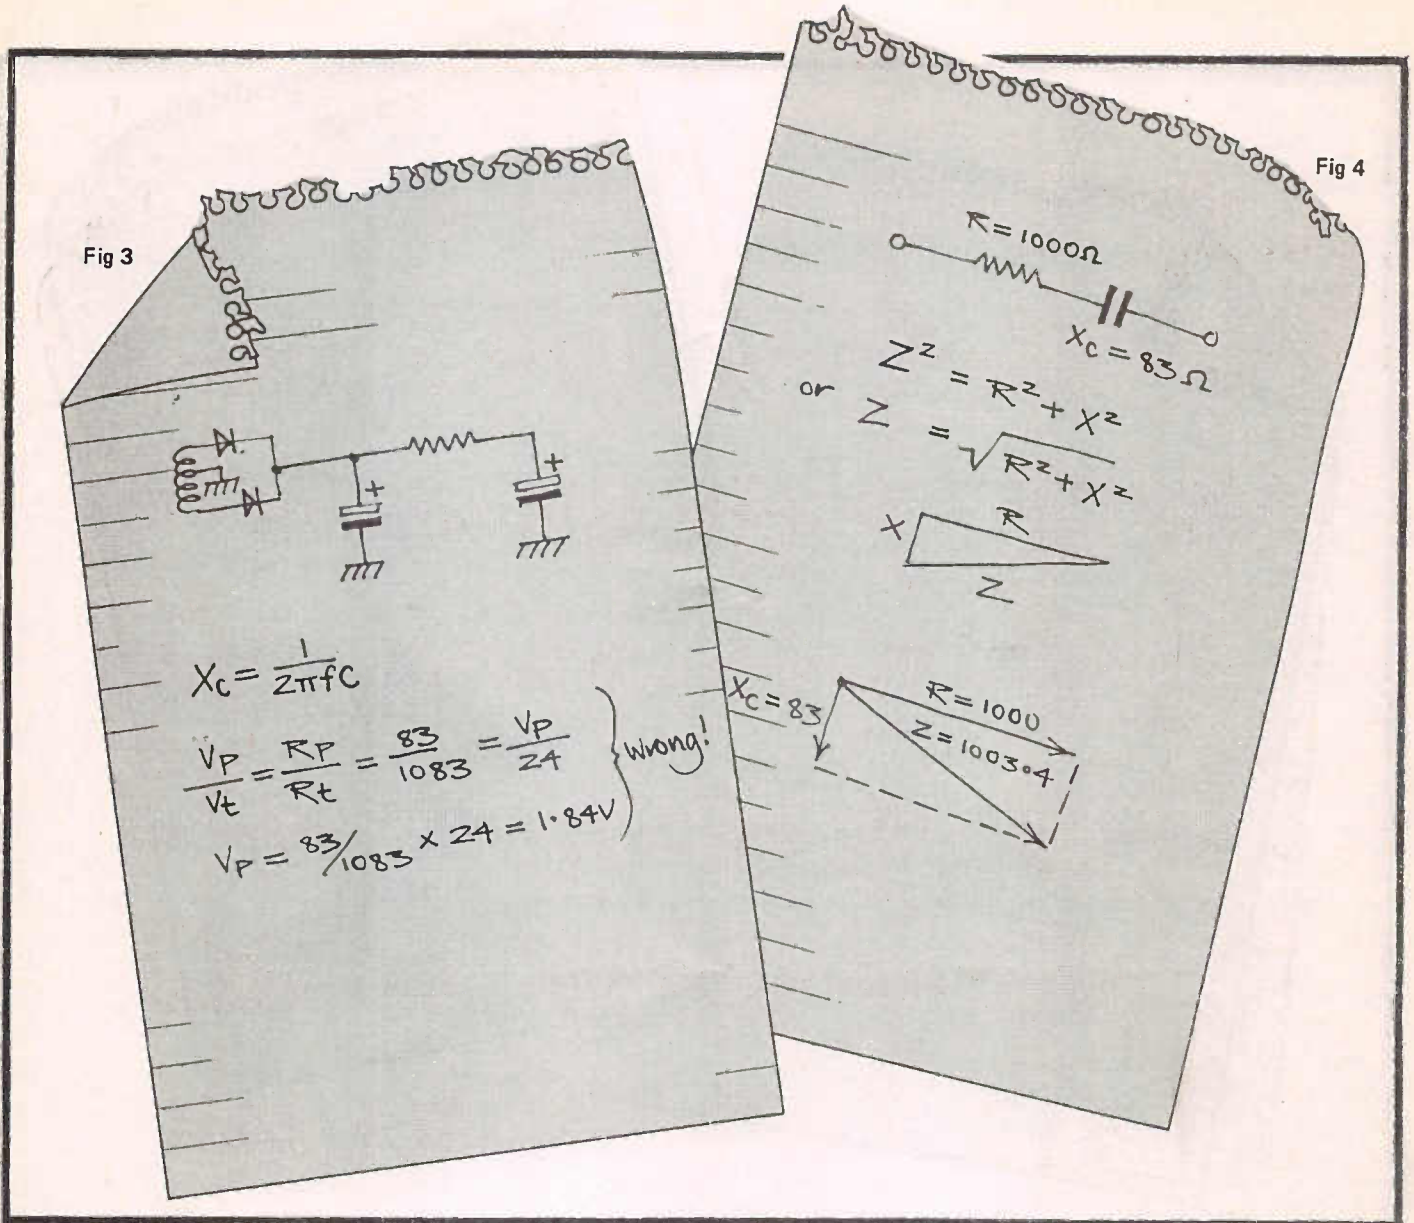 Fig 3
Xc = 1/2πfC
Vp/Vt = Rp/Rt = 83/1083 = Vp/24
Vp = 83/1083 × 24 = 1·84V
wrong!
Fig 4
R = 1000Ω
Xc = 83Ω
Z² = R² + X²
or Z = √R² + X²
X
R
Z
Xc = 83
R = 1000
Z = 1003·4
+
+